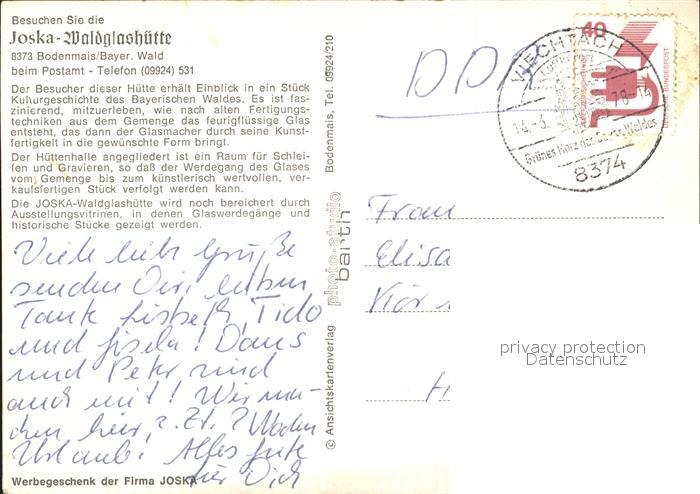 Besuchen Sie die
Joska-Waldglashütte
8373 Bodenmais/Bayer. Wald
beim Postamt - Telefon (09924) 531
Der Besucher dieser Hütte erhält Einblick in ein Stück
Kulturgeschichte des Bayerischen Waldes. Es ist fas-
zinierend, mitzuerleben, wie nach alten Fertigungs-
techniken aus dem Gemenge das feurigflüssige Glas
entsteht, das dann der Glasmacher durch seine Kunst-
fertigkeit in die gewünschte Form bringt.
Der Hüttenhalle angegliedert ist ein Raum für Schlei-
fen und Gravieren, so daß der Werdegang des Glases
vom Gemenge bis zum künstlerisch wertvollen, ver-
kaufsfertigen Stück verfolgt werden kann.
Die JOSKA-Waldglashütte wird noch bereichert durch
Ausstellungsvitrinen, in denen Glaswerdegänge und
historische Stücke gezeigt werden.
Viele liebe Grüße
senden Dir, lieben
Tante Lisbeth, Tido
und Gisela! Doris
und Peter sind
auch mit! Wir ma-
chen hier z. Zt. 2 Wochen
Urlaub! Alles Gute
für Dich
Werbegeschenk der Firma JOSKA
© Ansichtskartenverlag photo-studio barth Bodenmais, Tel. 09924/210
DDR
40
DEUTSCHE BUNDESPOST
VIECHTACH
14.-3. 78-14
Grünes Herz des Bayer. Waldes
8374
Frau
Elisa
Kör
H
privacy protection
Datenschutz